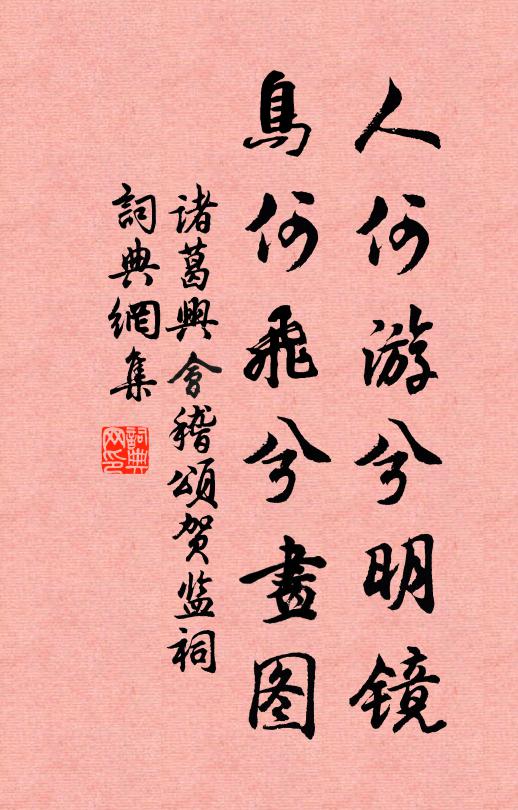 人何游兮明镜
鳥何飛兮畫图
诸葛興會稽頌贺监祠
詞典網集
詞典网印